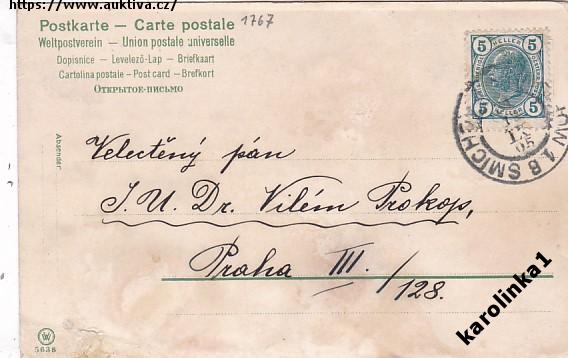 https://www.auktiva.cz/
Postkarte — Carte postale
1767
Weltpostverein — Union postale universelle
Dopisnice — Levelező-Lap — Briefkaart
Cartolina postale - Post card - Brefkort
Открытое-письмо
5 HELLER 5
5 HELLER 5
SMICHOW
Absender:
Velectěný pán
J. U. Dr. Vilém Prokop,
Praha III./128.
5638
karolinka1